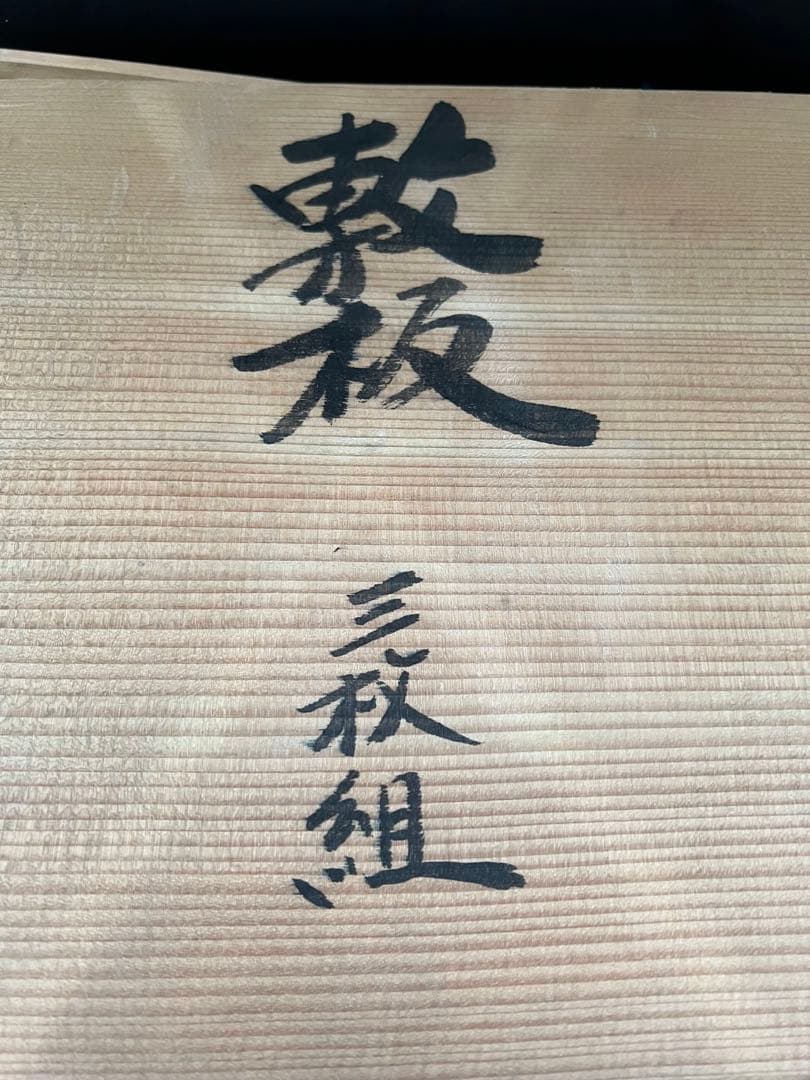 敷板
三枚組